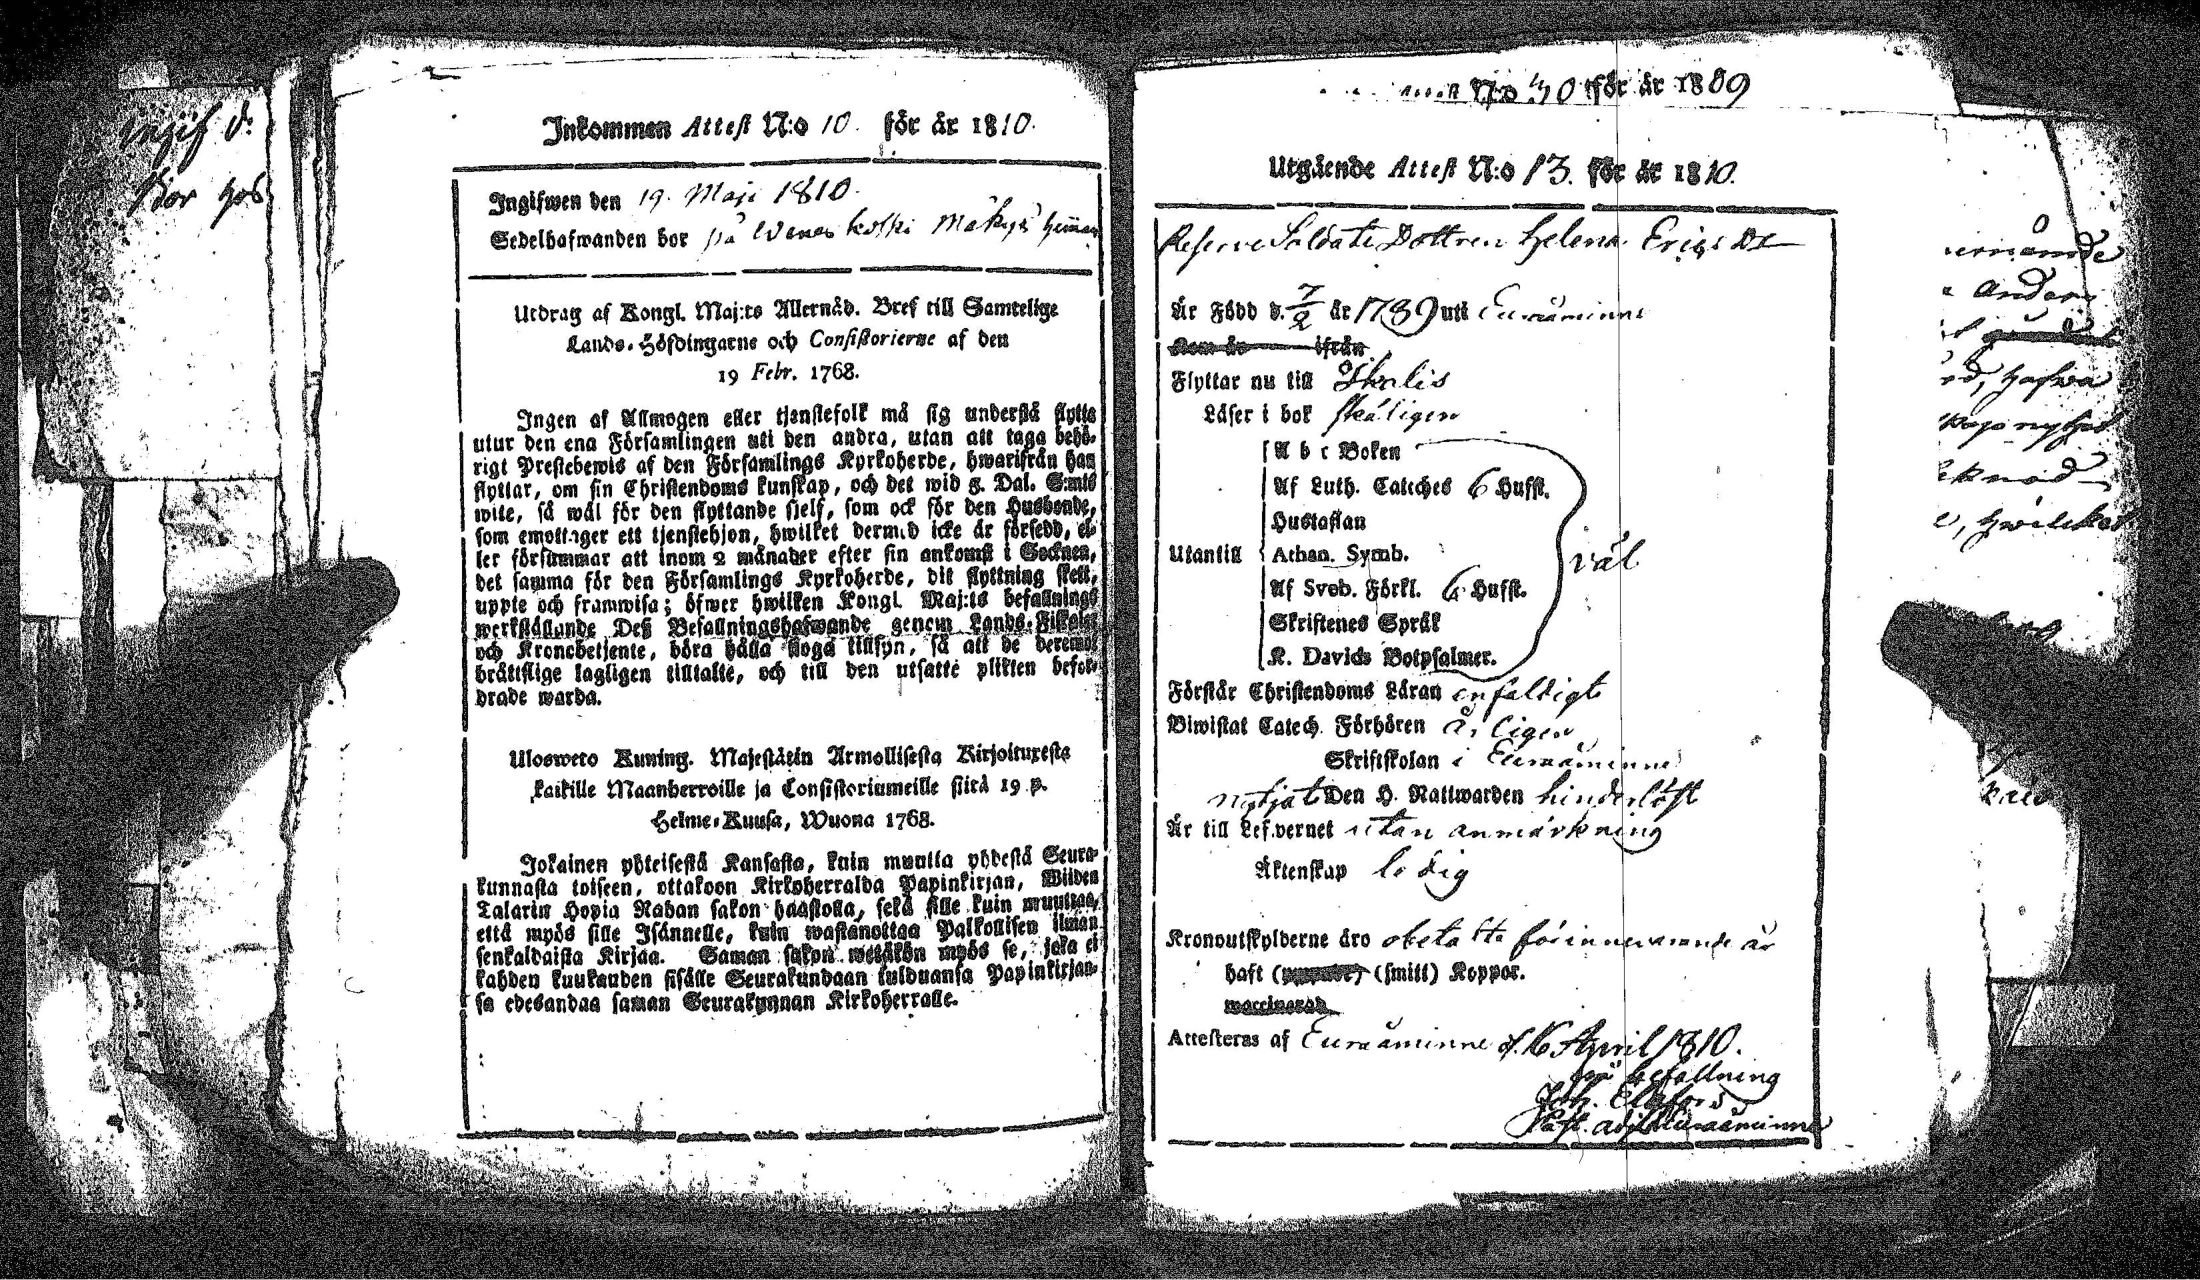 ingif d:
Bor hos
Inkommen Attest N:o 10. för år 1810.
Ingifwen den 19. Maji 1810.
Sedelhafwanden bor på Wenes koski Mäkyä heiman
Utdrag af Kongl. Maj:ts Allernåd. Bref till Samtelige
Lands-Höfdingarne och Consistorierne af den
19 Febr. 1768.
Ingen af Allmogen eller tjenstefolk må sig understå flytta
utur den ena Församlingen uti den andra, utan att taga behö-
rigt Prestebewis af den Församlings Kyrkoherde, hwarifrån han
flyttar, om sin Christendoms kunskap, och det wid 5. Dal. S:mts
wite, så wäl för den flyttande sjelf, som ock för den Husbonde,
som emottager ett tjenstehjon, hwilket dermed icke är försedd, el-
ler försummar att inom 2 månader efter sin ankomst i Socknen,
det samma för den Församlings Kyrkoherde, dit flyttning skett,
uppte och framwisa; öfwer hwilken Kongl. Maj:ts befallnings
werkställande Deß Befallningshafwande genom Lands-Fiskaler
och Kronobetjente, böra hålla noga tillsyn, så att de deremot
brättslige lagligen tilltalte, och till den utsatte plikten befor-
drade warda.
Ulosweto Kuning. Majestätein Armollisesta Kirjoituxesta
kaikille Maanherroille ja Consistoriumeille siitä 19 p.
Helme-Kuusa, Wuona 1768.
Jokainen yhteisestä Kansasta, kuin muutta yhdestä Seura-
kunnasta toiseen, ottakoon Kirkoherralda Papinkirjan, Wiiden
Talarin Hopia Rahan sakon haastolla, sekä sille kuin muuttaa,
että myös sille Isännelle, kuin wastanottaa Palkollisen ilman
senkaldaista Kirjaa. Saman sakon wetäkön myös se, joka ei
kahden kuukauden sisälle Seurakundaan tulduansa Papinkirjan-
sa edesandaa saman Seurakunnan Kirkoherralle.
N:o 40 för år 1809
Utgående Attest N:o 13. för år 1810.
Reserve Soldats Dottren Helena Erics Dr
Är Född d. 7/2 år 1789 uti Euraåminne
Kom år ifrån
Flyttar nu till
Läser i bok skäligen
A b c Boken
Af Luth. Cateches 6 Hufst.
Hustaflan
Utantill Athan. Symb. väl
Af Sveb. Förkl. 6 Hufst.
Skriftenes Språk
K. Davids Botpsalmer.
Förstår Christendoms Läran enfaldigt
Biwistat Catech. Förhören årligen
Skriftskolan i Euraåminne
nytjat Den H. Nattwarden hinderlöst
Är till Lefvernet utan anmärkning
Äktenskap ledig
Kronoutskylderne äro betalte för innevarande år
haft (smitt) Koppor.
vaccinerad
Attesteras af Euraåminne d. 16 April 1810.
på befallning
Joh.
Past. adj. i Euraåminne
Anders
rd, hafwa